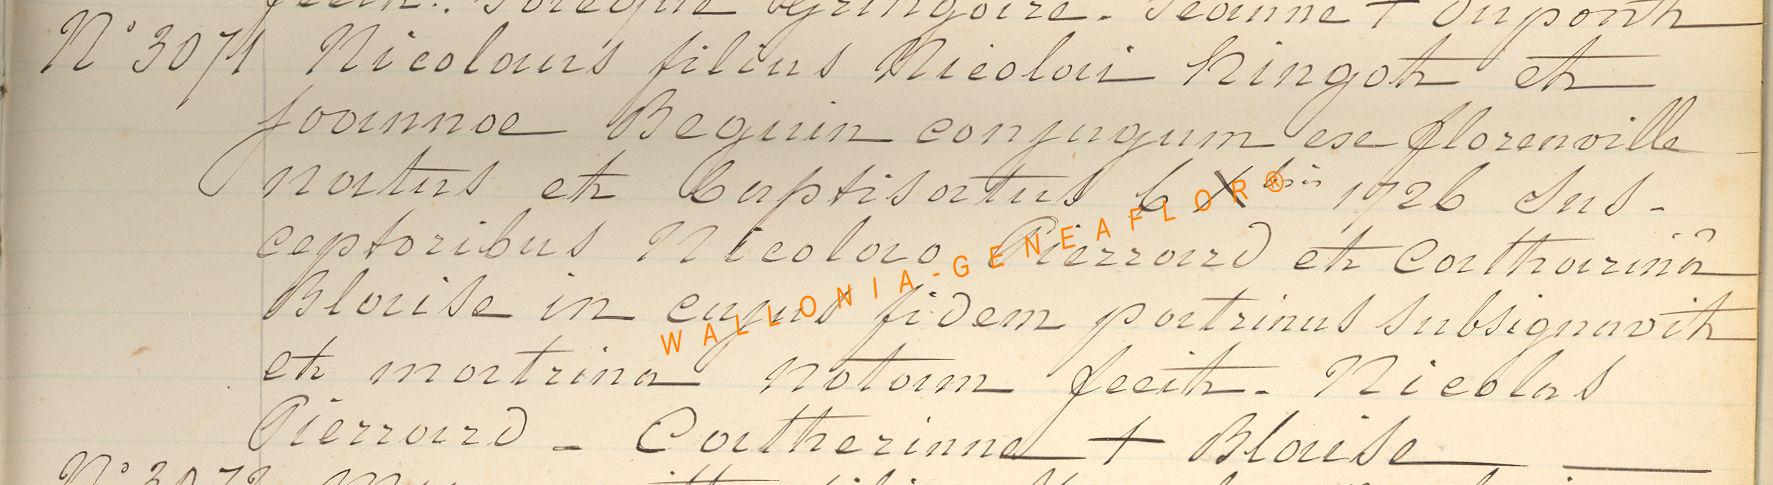 fecit. Gringoire. Jeanne + Duponth
N° 3071 Nicolaus filius Nicolai Hingot et
Joannae Beguin conjugum ex florenville
natus et baptisatus 6 Xbris 1726 Sus-
ceptoribus Nicolao Pierrard et Catharina
Blaise in cujus fidem patrinus subsignavit
et matrina notam fecit. Nicolas
Pierrard - Catherinne + Blaise
N° 3072
WALLONIA-GENEAFLOR®